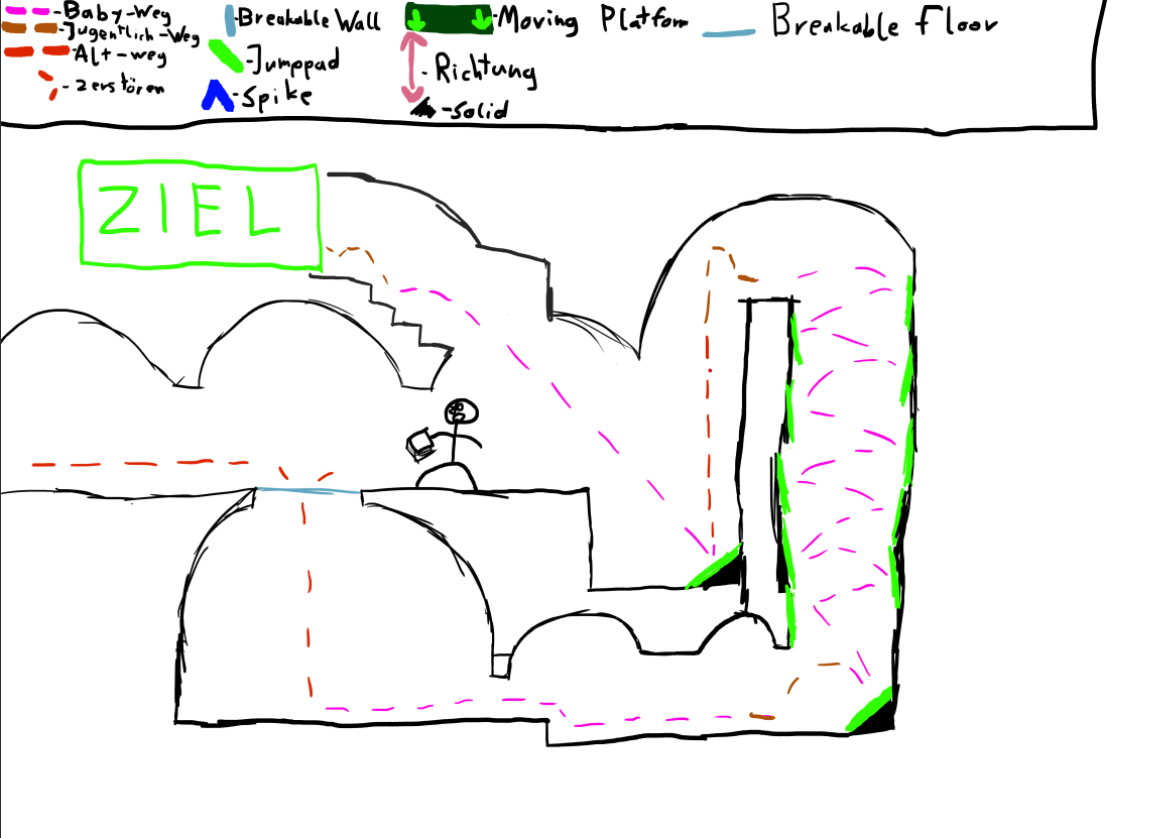 -Baby-Weg
-Jugentlich-Weg
-Alt-weg
-zerstören
-Breakable Wall
-Jumppad
-Spike
-Moving Platform
-Richtung
-solid
Breakable floor
ZIEL